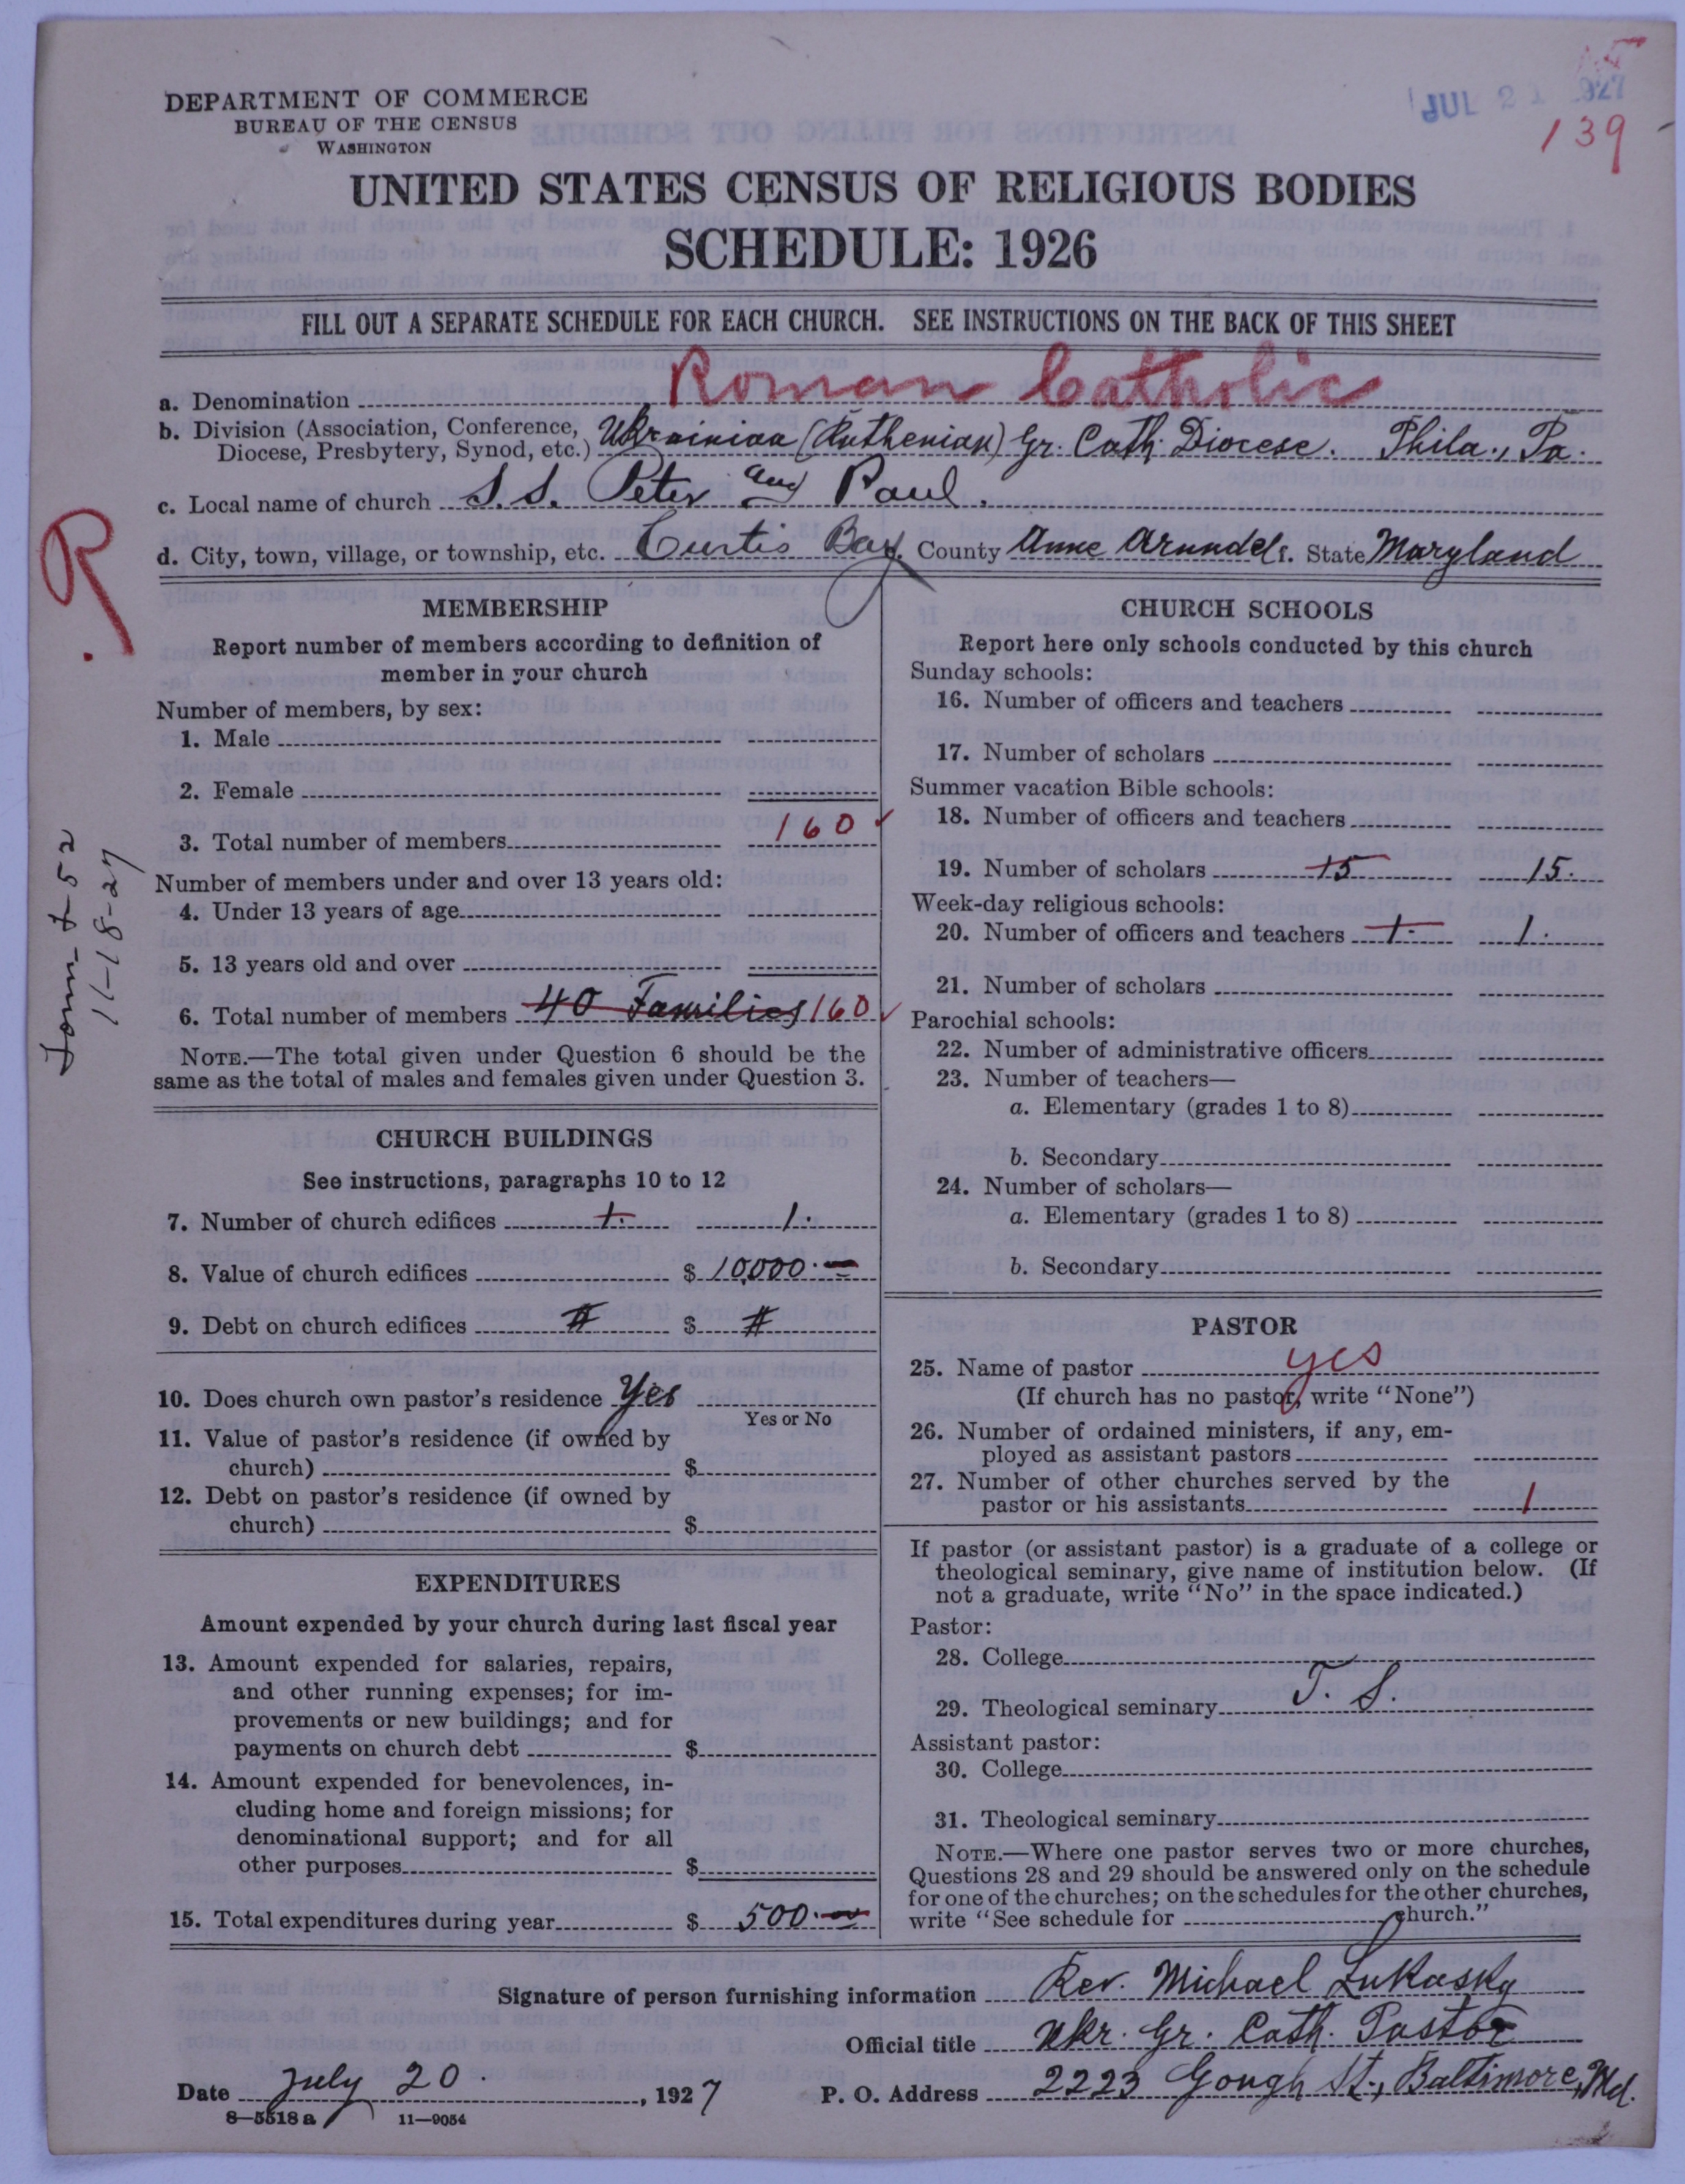 DEPARTMENT OF COMMERCE
BUREAU OF THE CENSUS
WASHINGTON
JUL 21 1927
139
UNITED STATES CENSUS OF RELIGIOUS BODIES
SCHEDULE: 1926
FILL OUT A SEPARATE SCHEDULE FOR EACH CHURCH. SEE INSTRUCTIONS ON THE BACK OF THIS SHEET
a. Denomination Roman Catholic
b. Division (Association, Conference, Diocese, Presbytery, Synod, etc.) Ukrainian (Ruthenian) Gr. Cath. Diocese. Phila., Pa.
c. Local name of church S.S. Peter and Paul.
d. City, town, village, or township, etc. Curtis Bay. County Anne Arundel. State Maryland
R.
Form F 52
11-18-27
MEMBERSHIP
Report number of members according to definition of
member in your church
Number of members, by sex:
1. Male
2. Female
3. Total number of members 160 ✓
Number of members under and over 13 years old:
4. Under 13 years of age
5. 13 years old and over
6. Total number of members 40 Families 160 ✓
NOTE.—The total given under Question 6 should be the
same as the total of males and females given under Question 3.
CHURCH BUILDINGS
See instructions, paragraphs 10 to 12
7. Number of church edifices 1. 1.
8. Value of church edifices $ 10,000.—
9. Debt on church edifices # $ #
10. Does church own pastor's residence Yes
Yes or No
11. Value of pastor's residence (if owned by
church) $
12. Debt on pastor's residence (if owned by
church) $
EXPENDITURES
Amount expended by your church during last fiscal year
13. Amount expended for salaries, repairs,
and other running expenses; for im-
provements or new buildings; and for
payments on church debt $
14. Amount expended for benevolences, in-
cluding home and foreign missions; for
denominational support; and for all
other purposes $
15. Total expenditures during year $ 500.—
CHURCH SCHOOLS
Report here only schools conducted by this church
Sunday schools:
16. Number of officers and teachers
17. Number of scholars
Summer vacation Bible schools:
18. Number of officers and teachers
19. Number of scholars 15 15.
Week-day religious schools:
20. Number of officers and teachers 1. 1.
21. Number of scholars
Parochial schools:
22. Number of administrative officers
23. Number of teachers—
a. Elementary (grades 1 to 8)
b. Secondary
24. Number of scholars—
a. Elementary (grades 1 to 8)
b. Secondary
PASTOR
25. Name of pastor yes
(If church has no pastor, write "None")
26. Number of ordained ministers, if any, em-
ployed as assistant pastors
27. Number of other churches served by the
pastor or his assistants 1
If pastor (or assistant pastor) is a graduate of a college or
theological seminary, give name of institution below. (If
not a graduate, write "No" in the space indicated.)
Pastor:
28. College
29. Theological seminary T. S.
Assistant pastor:
30. College
31. Theological seminary
NOTE.—Where one pastor serves two or more churches,
Questions 28 and 29 should be answered only on the schedule
for one of the churches; on the schedules for the other churches,
write "See schedule for church."
Signature of person furnishing information Rev. Michael Lukasky
Official title Ukr. Gr. Cath. Pastor
Date July 20. , 1927 P. O. Address 2223 Gough St., Baltimore, Md.
8—5518 a 11—9054